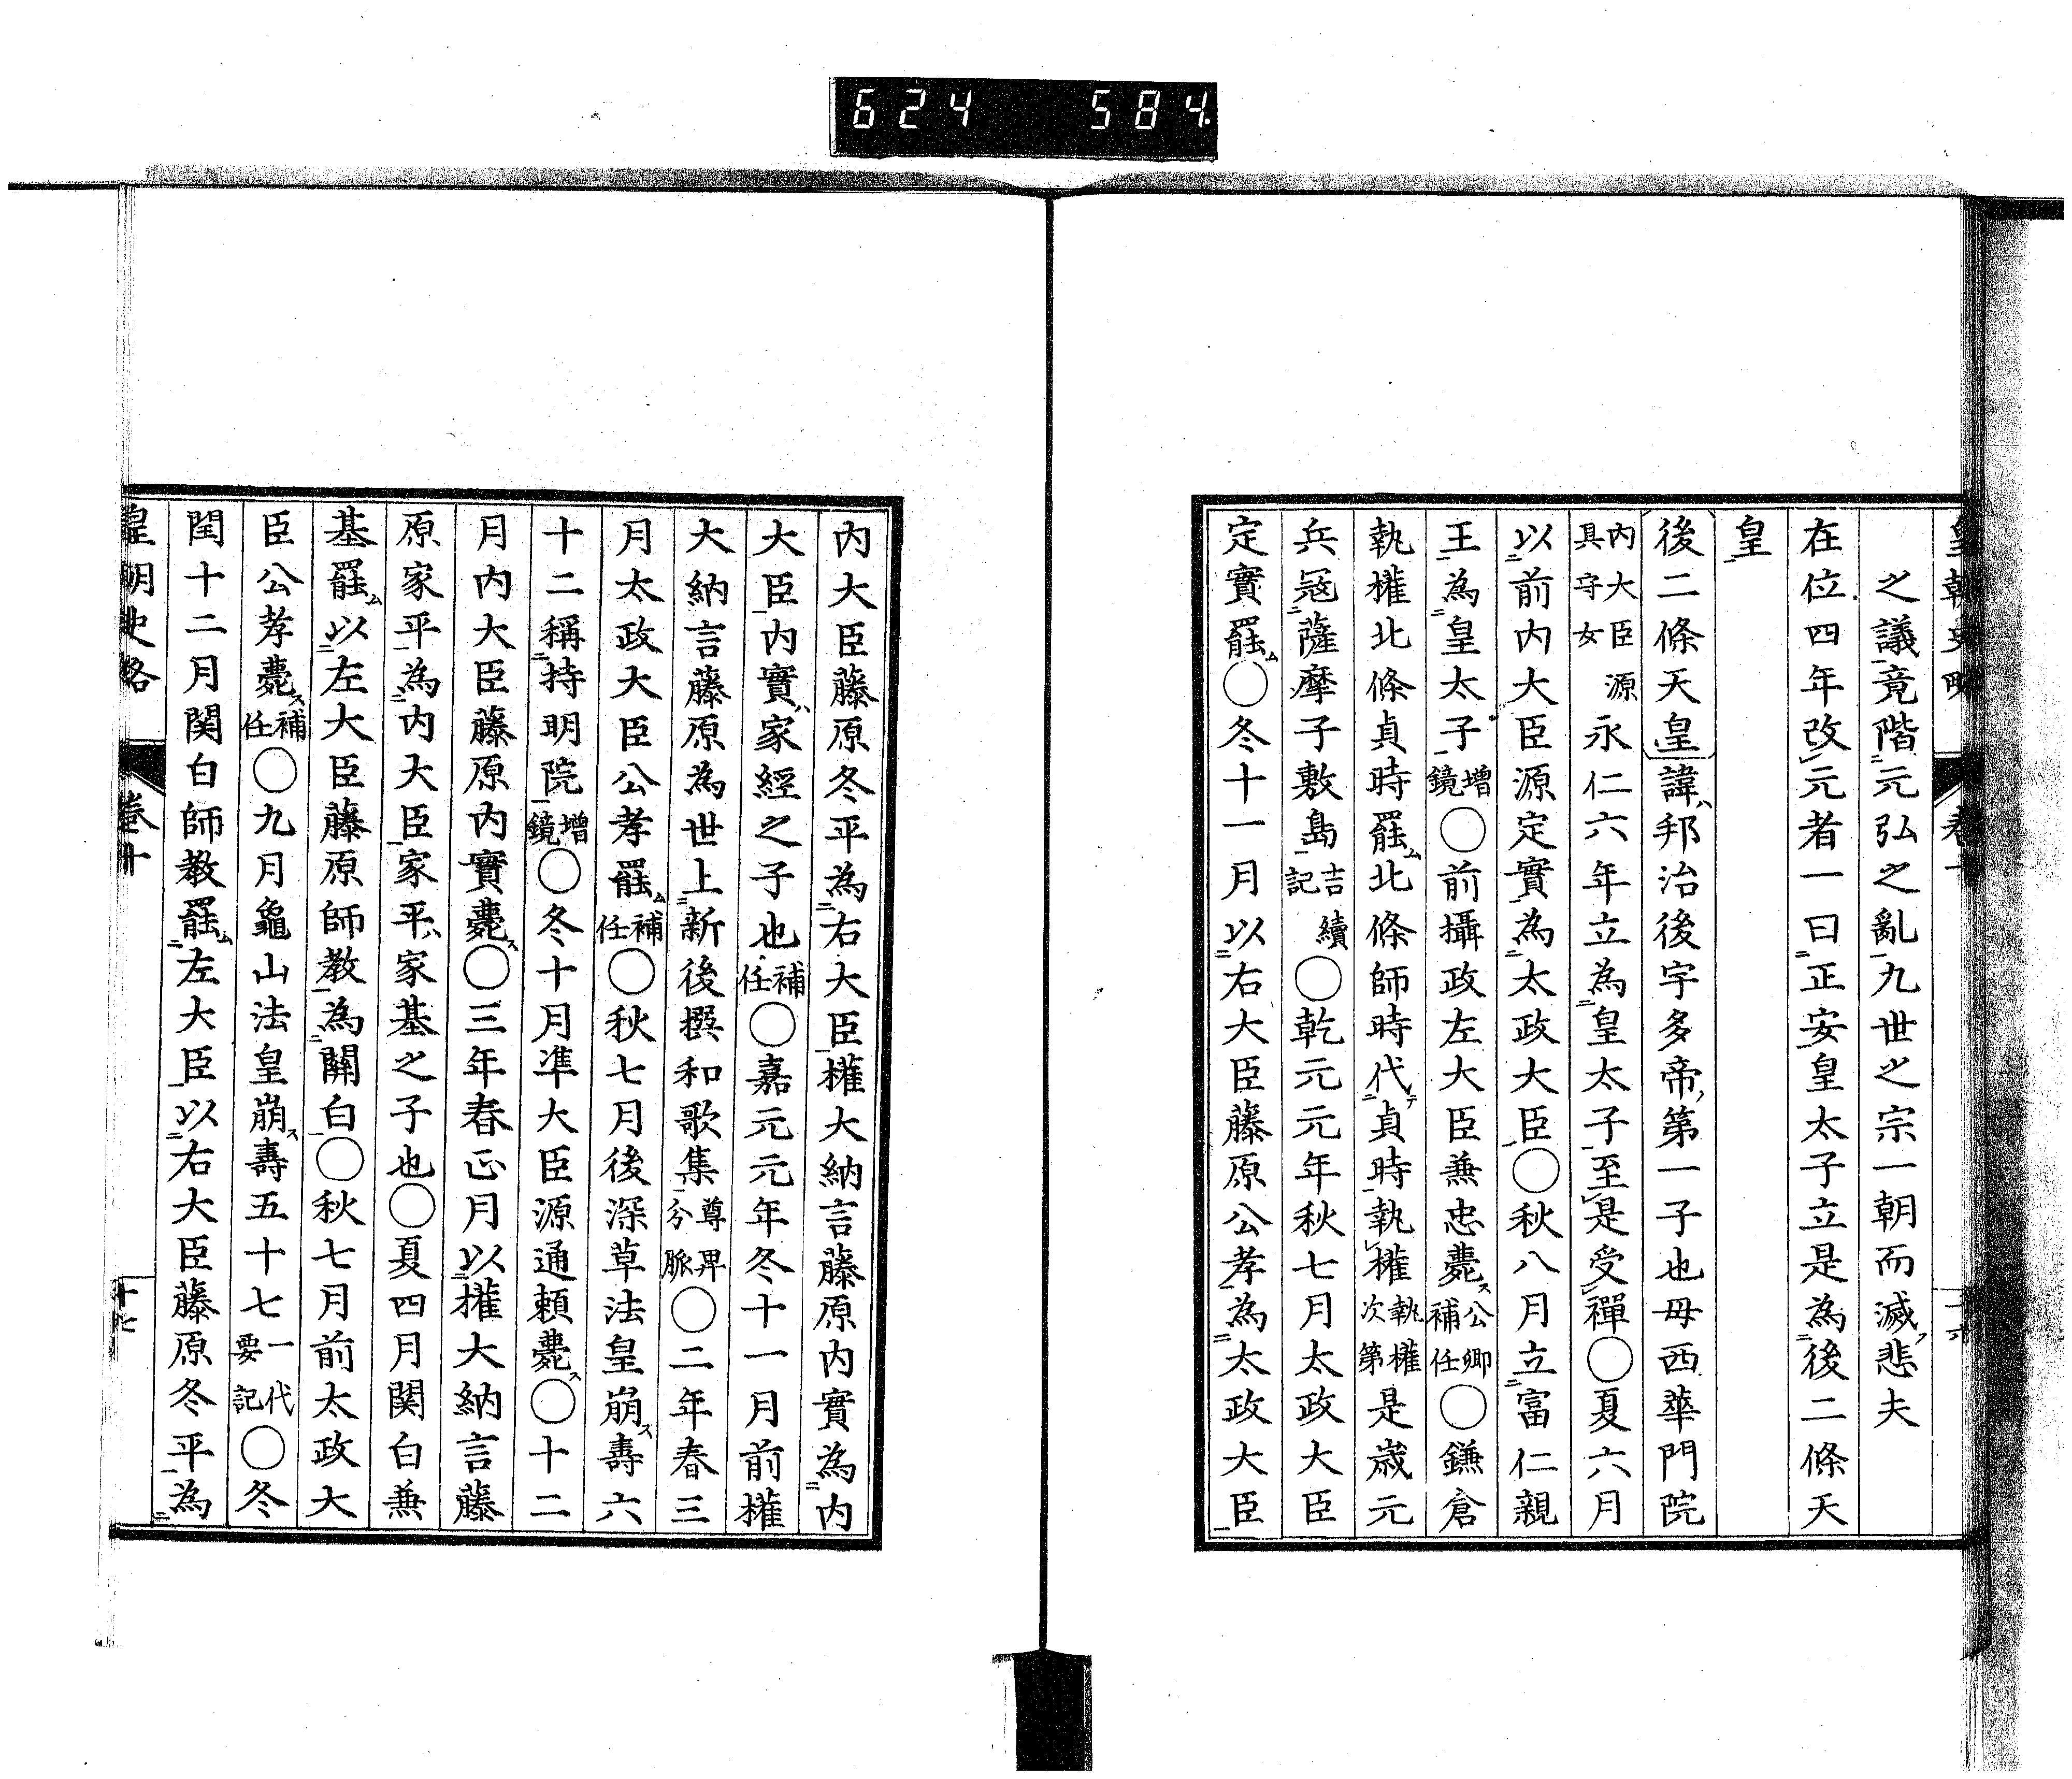 624 584.
之議竟階元弘之亂九世之宗一朝而滅悲夫
在位四年改元者一曰正安皇太子立是為後二條天
皇
後二條天皇諱ハ邦治後宇多帝ノ第一子也毋西華門院
内大臣源具守女永仁六年立為皇太子至是受禪〇夏六月
以前内大臣源定實為太政大臣〇秋八月立富仁親
王為皇太子增鏡〇前攝政左大臣兼忠薨ス公卿補任〇鎌倉
執權北條貞時罷ム北條師時代テ貞時執權執權次第是歲元
兵冦薩摩子敷島吉續記〇乾元元年秋七月太政大臣
定實罷ム〇冬十一月以右大臣藤原公孝為太政大臣
内大臣藤原冬平為右大臣權大納言藤原内實為内
大臣内實ハ家經之子也補任〇嘉元元年冬十一月前權
大納言藤原為世上新後撰和歌集尊卑分脈〇二年春三
月太政大臣公孝罷ム補任〇秋七月後深草法皇崩ス壽六
十二稱持明院增鏡〇冬十月凖大臣源通賴薨ス〇十二
月内大臣藤原内實薨ス〇三年春正月以權大納言藤
原家平為内大臣家平ハ家基之子也〇夏四月関白兼
基罷ム以左大臣藤原師教為關白〇秋七月前太政大
臣公孝薨ス補任〇九月龜山法皇崩ス壽五十七一代要記〇冬
閏十二月関白師教罷ム左大臣以右大臣藤原冬平為
皇朝史略 卷十 十七